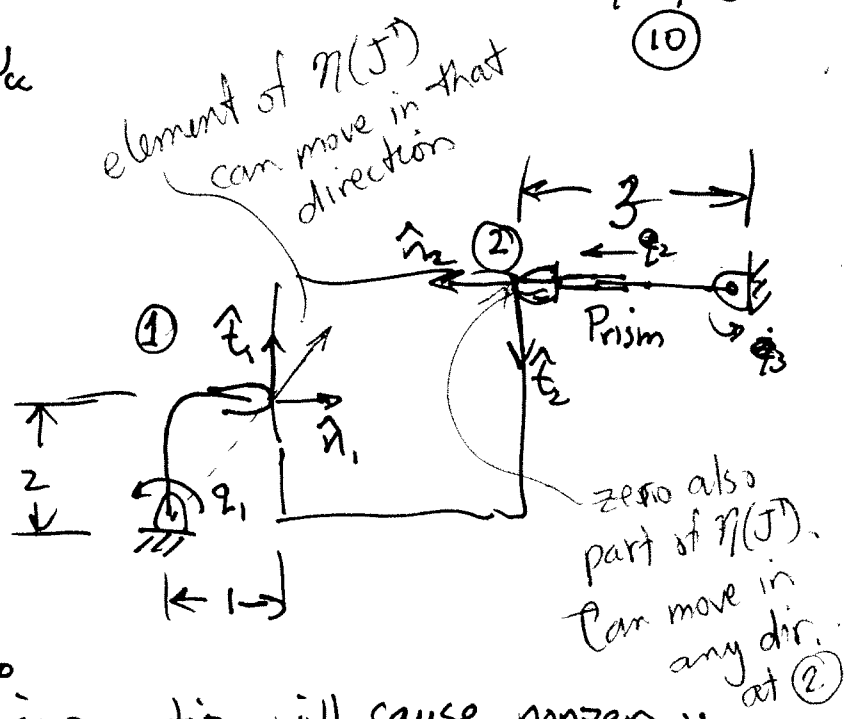 10
element of η(Jᵀ)
can move in that
direction
3
n̂₂
2
q̇₂
Prism
q̇₃
t̂₂
1
t̂₁
n̂₁
2
q₁
1
zero also
part of η(Jᵀ).
Can move in
any dir.
at 2
will cause